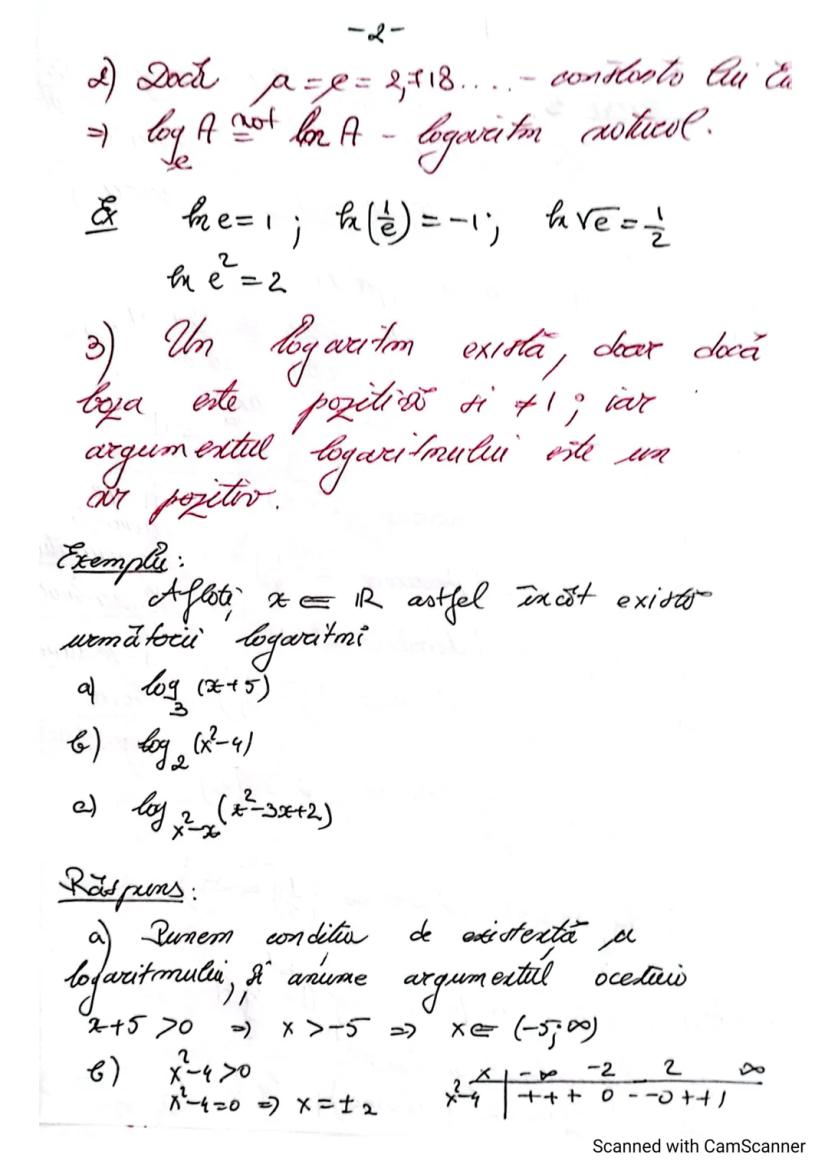 -2-
2) Dacă a = e = 2,718.... - constanta lui Eu
⇒ log_e A not= ln A - logaritm natural.
Ex ln e = 1 ; ln(1/e) = -1 ; ln √e = 1/2
ln e² = 2
3) Un logaritm există, doar dacă
baza este pozitivă si ≠ 1 ; iar
argumentul logaritmului este un
nr pozitiv.
Exemplu:
Aflați x ∈ ℝ astfel încât există
următorii logaritmi
a) log_3 (x+5)
b) log_2 (x²-4)
c) log_{x²-x} (x²-3x+2)
Răspuns:
a) Punem condiția de existență a
logaritmului, și anume argumentul acestuia
x+5 >0 ⇒ x > -5 ⇒ x ∈ (-5; ∞)
b) x²-4 >0
x²-4 = 0 ⇒ x = ± 2
x | -∞ -2 2 ∞
x²-4 | +++ 0 - - 0 ++
Scanned with CamScanner